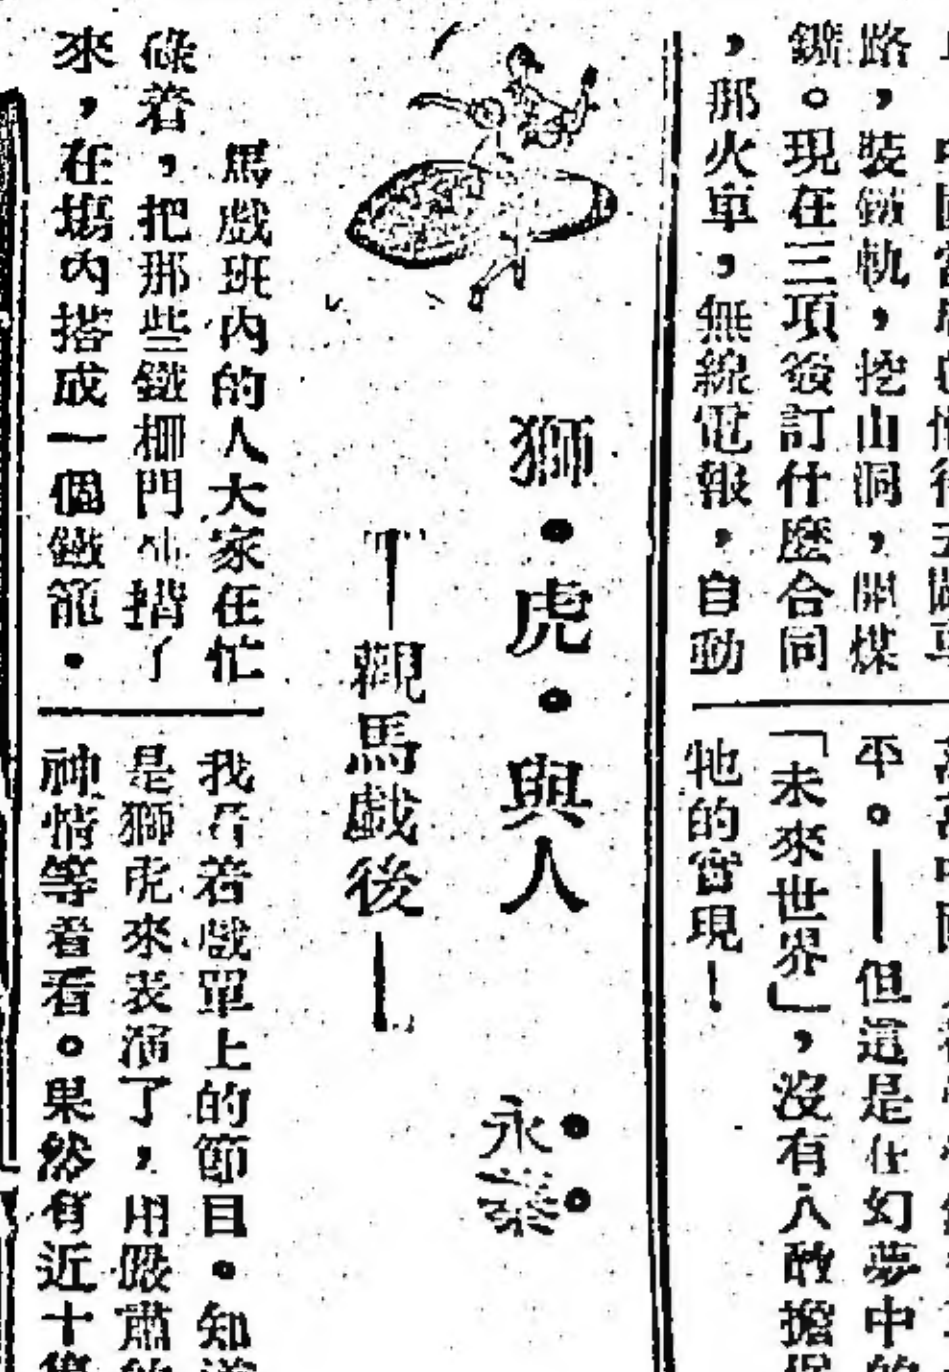 路，裝鐵軌，挖山洞，開煤
鑛。現在三項簽訂什麼合同
，那火車，無線電報，自動
平。——但這是在幻夢中的
「未來世界」，沒有人敢擔
牠的實現！
獅·虎·與人
永葉
——觀馬戲後——
馬戲班內的人大家在忙
碌着，把那些鐵柵門 揹了
來，在塲內搭成一個鐵籠。
我看着戲單上的節目。知道
是獅虎來表演了，用嚴肅的
神情等着看。果然有近十隻